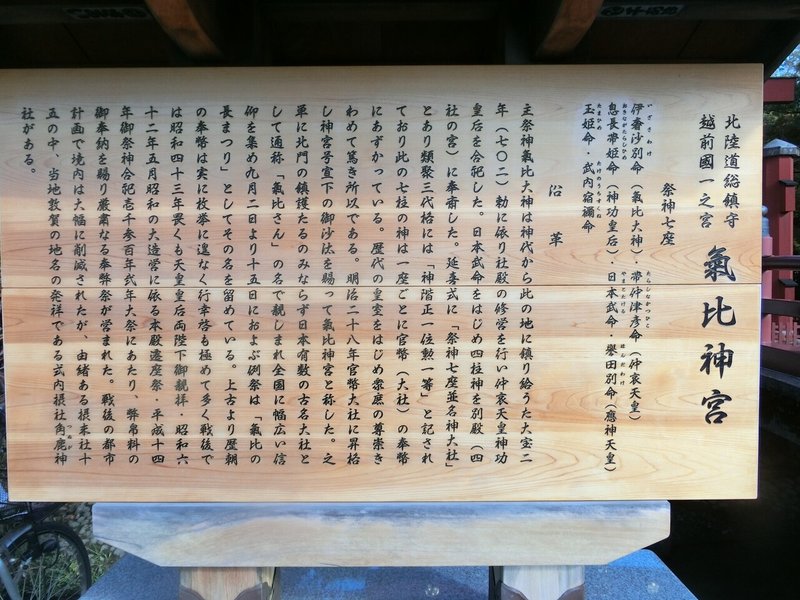 北陸道総鎮守
越前國一之宮
氣比神宮
祭神七座
伊奢沙別命（氣比大神）・帯仲津彦命（仲哀天皇）
いざさわけ
たらしなかつひこ
息長帯姫命（神功皇后）・日本武命・譽田別命（應神天皇）
おきながたらしひめ
やまとたける
ほんだわけ
玉姫命・武内宿禰命
たまひめ
たけのうちすくね
沿革
主祭神氣比大神は神代から此の地に鎮り給うた大宝二
年（七〇二）勅に依り社殿の修営を行い仲哀天皇神功
皇后を合祀した。日本武命をはじめ四柱神を別殿（四
社の宮）に奉斎した。延喜式に「祭神七座並名神大社」
とあり類聚三代格には「神階正一位勲一等」と記され
ており此の七柱の神は一座ごとに官幣（大社）の奉幣
にあずかっている。歴代の皇室をはじめ衆庶の尊崇き
わめて篤き所以である。明治二十八年官幣大社に昇格
し神宮号宣下の御沙汰を賜って氣比神宮と称した。之
単に北門の鎮護たるのみならず日本有数の古名大社と
して通称「氣比さん」の名で親しまれ全国に幅広い信
仰を集め九月二日より十五日におよぶ例祭は「氣比の
長まつり」としてその名を留めている。上古より歴朝
の奉幣は実に枚挙に遑なく行幸啓も極めて多く戦後で
は昭和四十三年畏くも天皇皇后両陛下御親拝・昭和六
十二年五月昭和の大造営に依る本殿遷座祭・平成十四
年御祭神合祀壱千参百年式年大祭にあたり、幣帛料の
御奉納を賜り厳粛なる奉幣祭が営まれた。戦後の都市
計画で境内は大幅に削減されたが、由緒ある摂末社十
五の中、当地敦賀の地名の発祥である式内摂社角鹿神
つぬが
社がある。